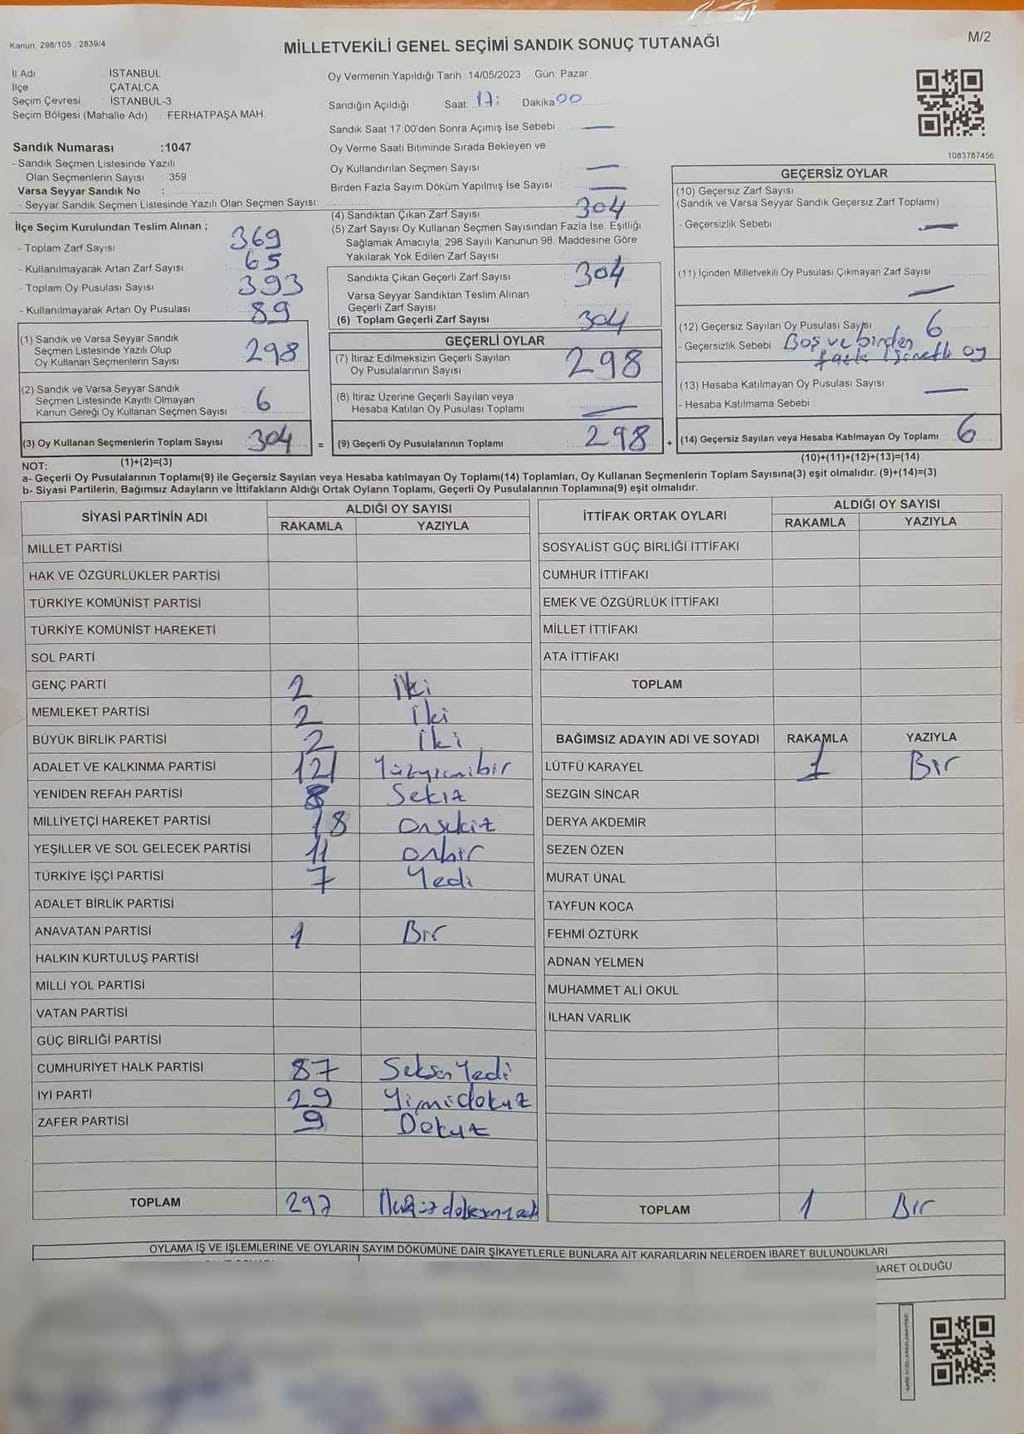 Kanun: 298/105 , 2839/4
MİLLETVEKİLİ GENEL SEÇİMİ SANDIK SONUÇ TUTANAĞI
M/2
İl Adı İSTANBUL
İlçe ÇATALCA
Seçim Çevresi : İSTANBUL-3
Seçim Bölgesi (Mahalle Adı) : FERHATPAŞA MAH.
Sandık Numarası :1047
- Sandık Seçmen Listesinde Yazılı
Olan Seçmenlerin Sayısı : 359
Varsa Seyyar Sandık No :
- Seyyar Sandık Seçmen Listesinde Yazılı Olan Seçmen Sayısı:
Oy Vermenin Yapıldığı Tarih :14/05/2023 Gün: Pazar
Sandığın Açıldığı Saat 17: Dakika 00
Sandık Saat 17.00'den Sonra Açımış İse Sebebi —
Oy Verme Saati Bitiminde Sırada Bekleyen ve
Oy Kullandırılan Seçmen Sayısı —
Birden Fazla Sayım Döküm Yapılmış İse Sayısı —
1083787456
İlçe Seçim Kurulundan Teslim Alınan ;
- Toplam Zarf Sayısı 369
- Kullanılmayarak Artan Zarf Sayısı 65
- Toplam Oy Pusulası Sayısı 393
- Kullanılmayarak Artan Oy Pusulası 89
(1) Sandık ve Varsa Seyyar Sandık
Seçmen Listesinde Yazılı Olup
Oy Kullanan Seçmenlerin Sayısı 298
(2) Sandık ve Varsa Seyyar Sandık
Seçmen Listesinde Kayıtlı Olmayan
Kanun Gereği Oy Kullanan Seçmen Sayısı 6
(3) Oy Kullanan Seçmenlerin Toplam Sayısı 304 =
(1)+(2)=(3)
(4) Sandıktan Çıkan Zarf Sayısı 304
(5) Zarf Sayısı Oy Kullanan Seçmen Sayısından Fazla İse, Eşitliği
Sağlamak Amacıyla, 298 Sayılı Kanunun 98. Maddesine Göre
Yakılarak Yok Edilen Zarf Sayısı
Sandıkta Çıkan Geçerli Zarf Sayısı 304
Varsa Seyyar Sandıktan Teslim Alınan
Geçerli Zarf Sayısı
(6) Toplam Geçerli Zarf Sayısı 304
GEÇERLİ OYLAR
(7) İtiraz Edilmeksizin Geçerli Sayılan
Oy Pusulalarının Sayısı 298
(8) İtiraz Üzerine Geçerli Sayılan veya
Hesaba Katılan Oy Pusulası Toplamı —
(9) Geçerli Oy Pusulalarının Toplamı 298 +
GEÇERSİZ OYLAR
(10) Geçersiz Zarf Sayısı
(Sandık ve Varsa Seyyar Sandık Geçersiz Zarf Toplamı)
- Geçersizlik Sebebi —
(11) İçinden Milletvekili Oy Pusulası Çıkmayan Zarf Sayısı
—
(12) Geçersiz Sayılan Oy Pusulası Sayısı 6
- Geçersizlik Sebebi Boş ve birden
fazla işaretli oy
(13) Hesaba Katılmayan Oy Pusulası Sayısı —
- Hesaba Katılmama Sebebi
(14) Geçersiz Sayılan veya Hesaba Katılmayan Oy Toplamı 6
(10)+(11)+(12)+(13)=(14)
NOT:
a- Geçerli Oy Pusulalarının Toplamı(9) ile Geçersiz Sayılan veya Hesaba katılmayan Oy Toplamı(14) Toplamları, Oy Kullanan Seçmenlerin Toplam Sayısına(3) eşit olmalıdır. (9)+(14)=(3)
b- Siyasi Partilerin, Bağımsız Adayların ve İttifakların Aldığı Ortak Oyların Toplamı, Geçerli Oy Pusulalarının Toplamına(9) eşit olmalıdır.
SİYASİ PARTİNİN ADI ALDIĞI OY SAYISI
RAKAMLA YAZIYLA
MİLLET PARTİSİ
HAK VE ÖZGÜRLÜKLER PARTİSİ
TÜRKİYE KOMÜNİST PARTİSİ
TÜRKİYE KOMÜNİST HAREKETİ
SOL PARTİ
GENÇ PARTİ 2 iki
MEMLEKET PARTİSİ 2 iki
BÜYÜK BİRLİK PARTİSİ 2 iki
ADALET VE KALKINMA PARTİSİ 121 Yüzyirmibir
YENİDEN REFAH PARTİSİ 8 Sekiz
MİLLİYETÇİ HAREKET PARTİSİ 18 onsekiz
YEŞİLLER VE SOL GELECEK PARTİSİ 11 onbir
TÜRKİYE İŞÇİ PARTİSİ 7 Yedi
ADALET BİRLİK PARTİSİ
ANAVATAN PARTİSİ 1 Bir
HALKIN KURTULUŞ PARTİSİ
MİLLİ YOL PARTİSİ
VATAN PARTİSİ
GÜÇ BİRLİĞİ PARTİSİ
CUMHURİYET HALK PARTİSİ 87 Seksen Yedi
İYİ PARTİ 29 Yirmidokuz
ZAFER PARTİSİ 9 Dokuz
TOPLAM 297 ikiyüzdoksanyedi
İTTİFAK ORTAK OYLARI ALDIĞI OY SAYISI
RAKAMLA YAZIYLA
SOSYALİST GÜÇ BİRLİĞİ İTTİFAKI
CUMHUR İTTİFAKI
EMEK VE ÖZGÜRLÜK İTTİFAKI
MİLLET İTTİFAKI
ATA İTTİFAKI
TOPLAM
BAĞIMSIZ ADAYIN ADI VE SOYADI RAKAMLA YAZIYLA
LÜTFÜ KARAYEL 1 Bir
SEZGİN SİNCAR
DERYA AKDEMİR
SEZEN ÖZEN
MURAT ÜNAL
TAYFUN KOCA
FEHMİ ÖZTÜRK
ADNAN YELMEN
MUHAMMET ALİ OKUL
İLHAN VARLIK
TOPLAM 1 Bir
OYLAMA İŞ VE İŞLEMLERİNE VE OYLARIN SAYIM DÖKÜMÜNE DAİR ŞİKAYETLERLE BUNLARA AİT KARARLARIN NELERDEN İBARET BULUNDUKLARI
BARET OLDUĞU